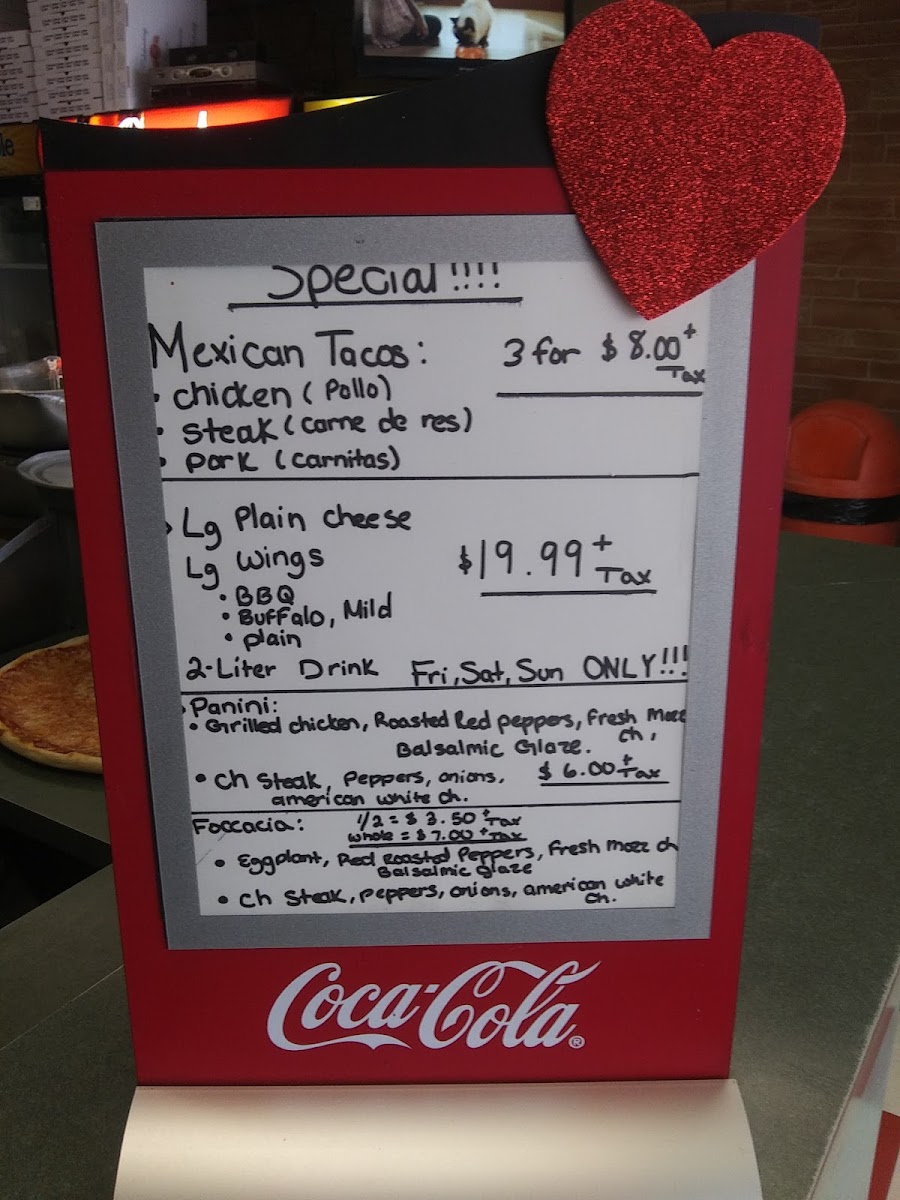 Special!!!!
Mexican Tacos: 3 for $8.00+ Tax
• chicken (Pollo)
• steak (carne de res)
• pork (carnitas)
Lg Plain cheese
Lg wings $19.99+ Tax
• BBQ
• Buffalo, Mild
• plain
2-Liter Drink Fri, Sat, Sun ONLY!!!
Panini:
• Grilled chicken, Roasted Red peppers, fresh Mozz ch,
Balsalmic Glaze.
• ch steak, peppers, onions, $6.00+ Tax
american white ch.
Foccacia: 1/2 = $3.50+ Tax
whole = $7.00+ Tax
• Eggplant, Red Roasted Peppers, fresh mozz ch
Balsalmic glaze
• ch steak, peppers, onions, american white
ch.
Coca-Cola®